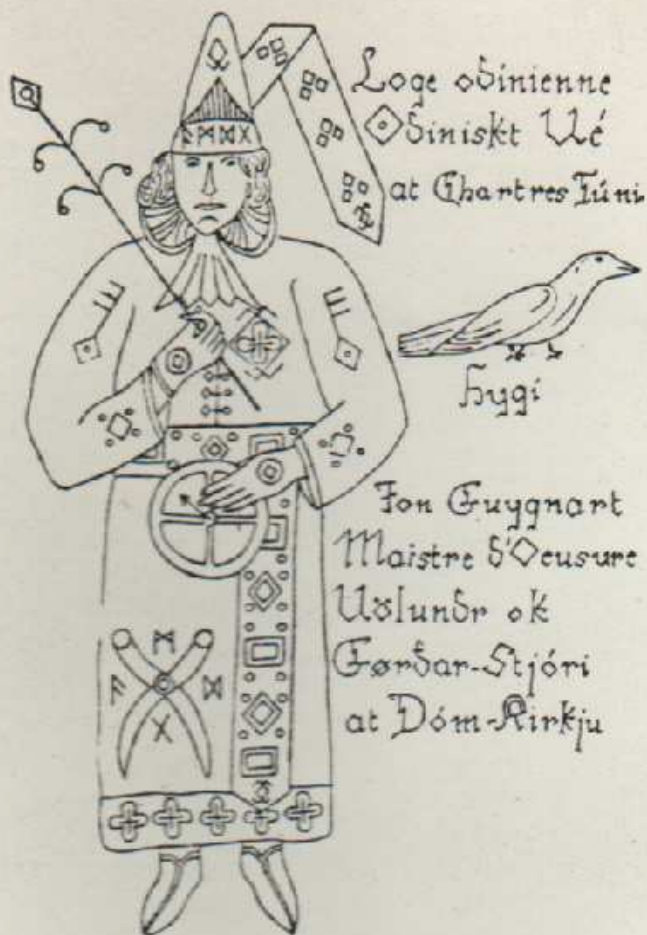 ᚨᛗᛞᚷ
Loge oðinienne
Oðiniskt Vé
at Chartres Túni
hygi
Jon Guygnart
Maistre d'Oeusure
Völundr ok
Gørðar-Stjóri
at Dóm-Kirkju
ᛗ
ᚨ ᛞ
ᚷ